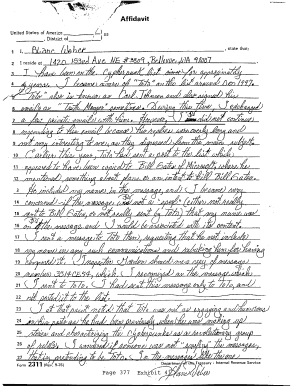 Affidavit
United States of America
District of
ss
1 I, Blanc Weber, state that:
2 I reside at 1420 153rd Ave NE # 3807, Bellevue, WA 98007
3 I have been on the Cypherpunk list for approximately
4 years. I became aware of "Toto" on the list around Oct 1997.
5 Toto also is known as Carl Johnson and also signed his
6 emails as "Truth Monger" sometimes. During this time, I exchanged
7 a few private emails with him. However, I did not continue
8 responding to his email because his replies were overly long and
9 not very interesting to me, as they digressed from the main subject.
10 Earlier this year, Toto had sent a post to the list which
11 appeared to have been copied to Bill Gates of Microsoft, where he
12 mentioned something about plans or an intent to kill Bill Gates.
13 He included my name in the message, and I became very
14 concerned if the message was not a "spoof" (either not really
15 sent to Bill Gates, or not really sent by Toto) that my name was
16 on the message and I would be associated with its content.
17 I sent a message to Toto then, requesting that he not include
18 my name in any of his communications and rebuking him for having
19 Inspector Gordon showed me a copy of message
20 number which I recognized as the message which
21 I sent to Toto. I had sent this message only to Toto, and
22 not posted it to the list.
23 I at that point noted that Toto was not as engaging and humorous
24 as he had been previously when he was making up
25 stories and characterizing the Cypherpunks as a revolutionary group
26 of rebels. I wondered if someone was not "spoofing" the messages,
27 that is, pretending to be Toto. In the messages
Form 2311 (Rev. 9-85) Department of the Treasury - Internal Revenue Service
Page 377 Exhibit
Blanc Weber